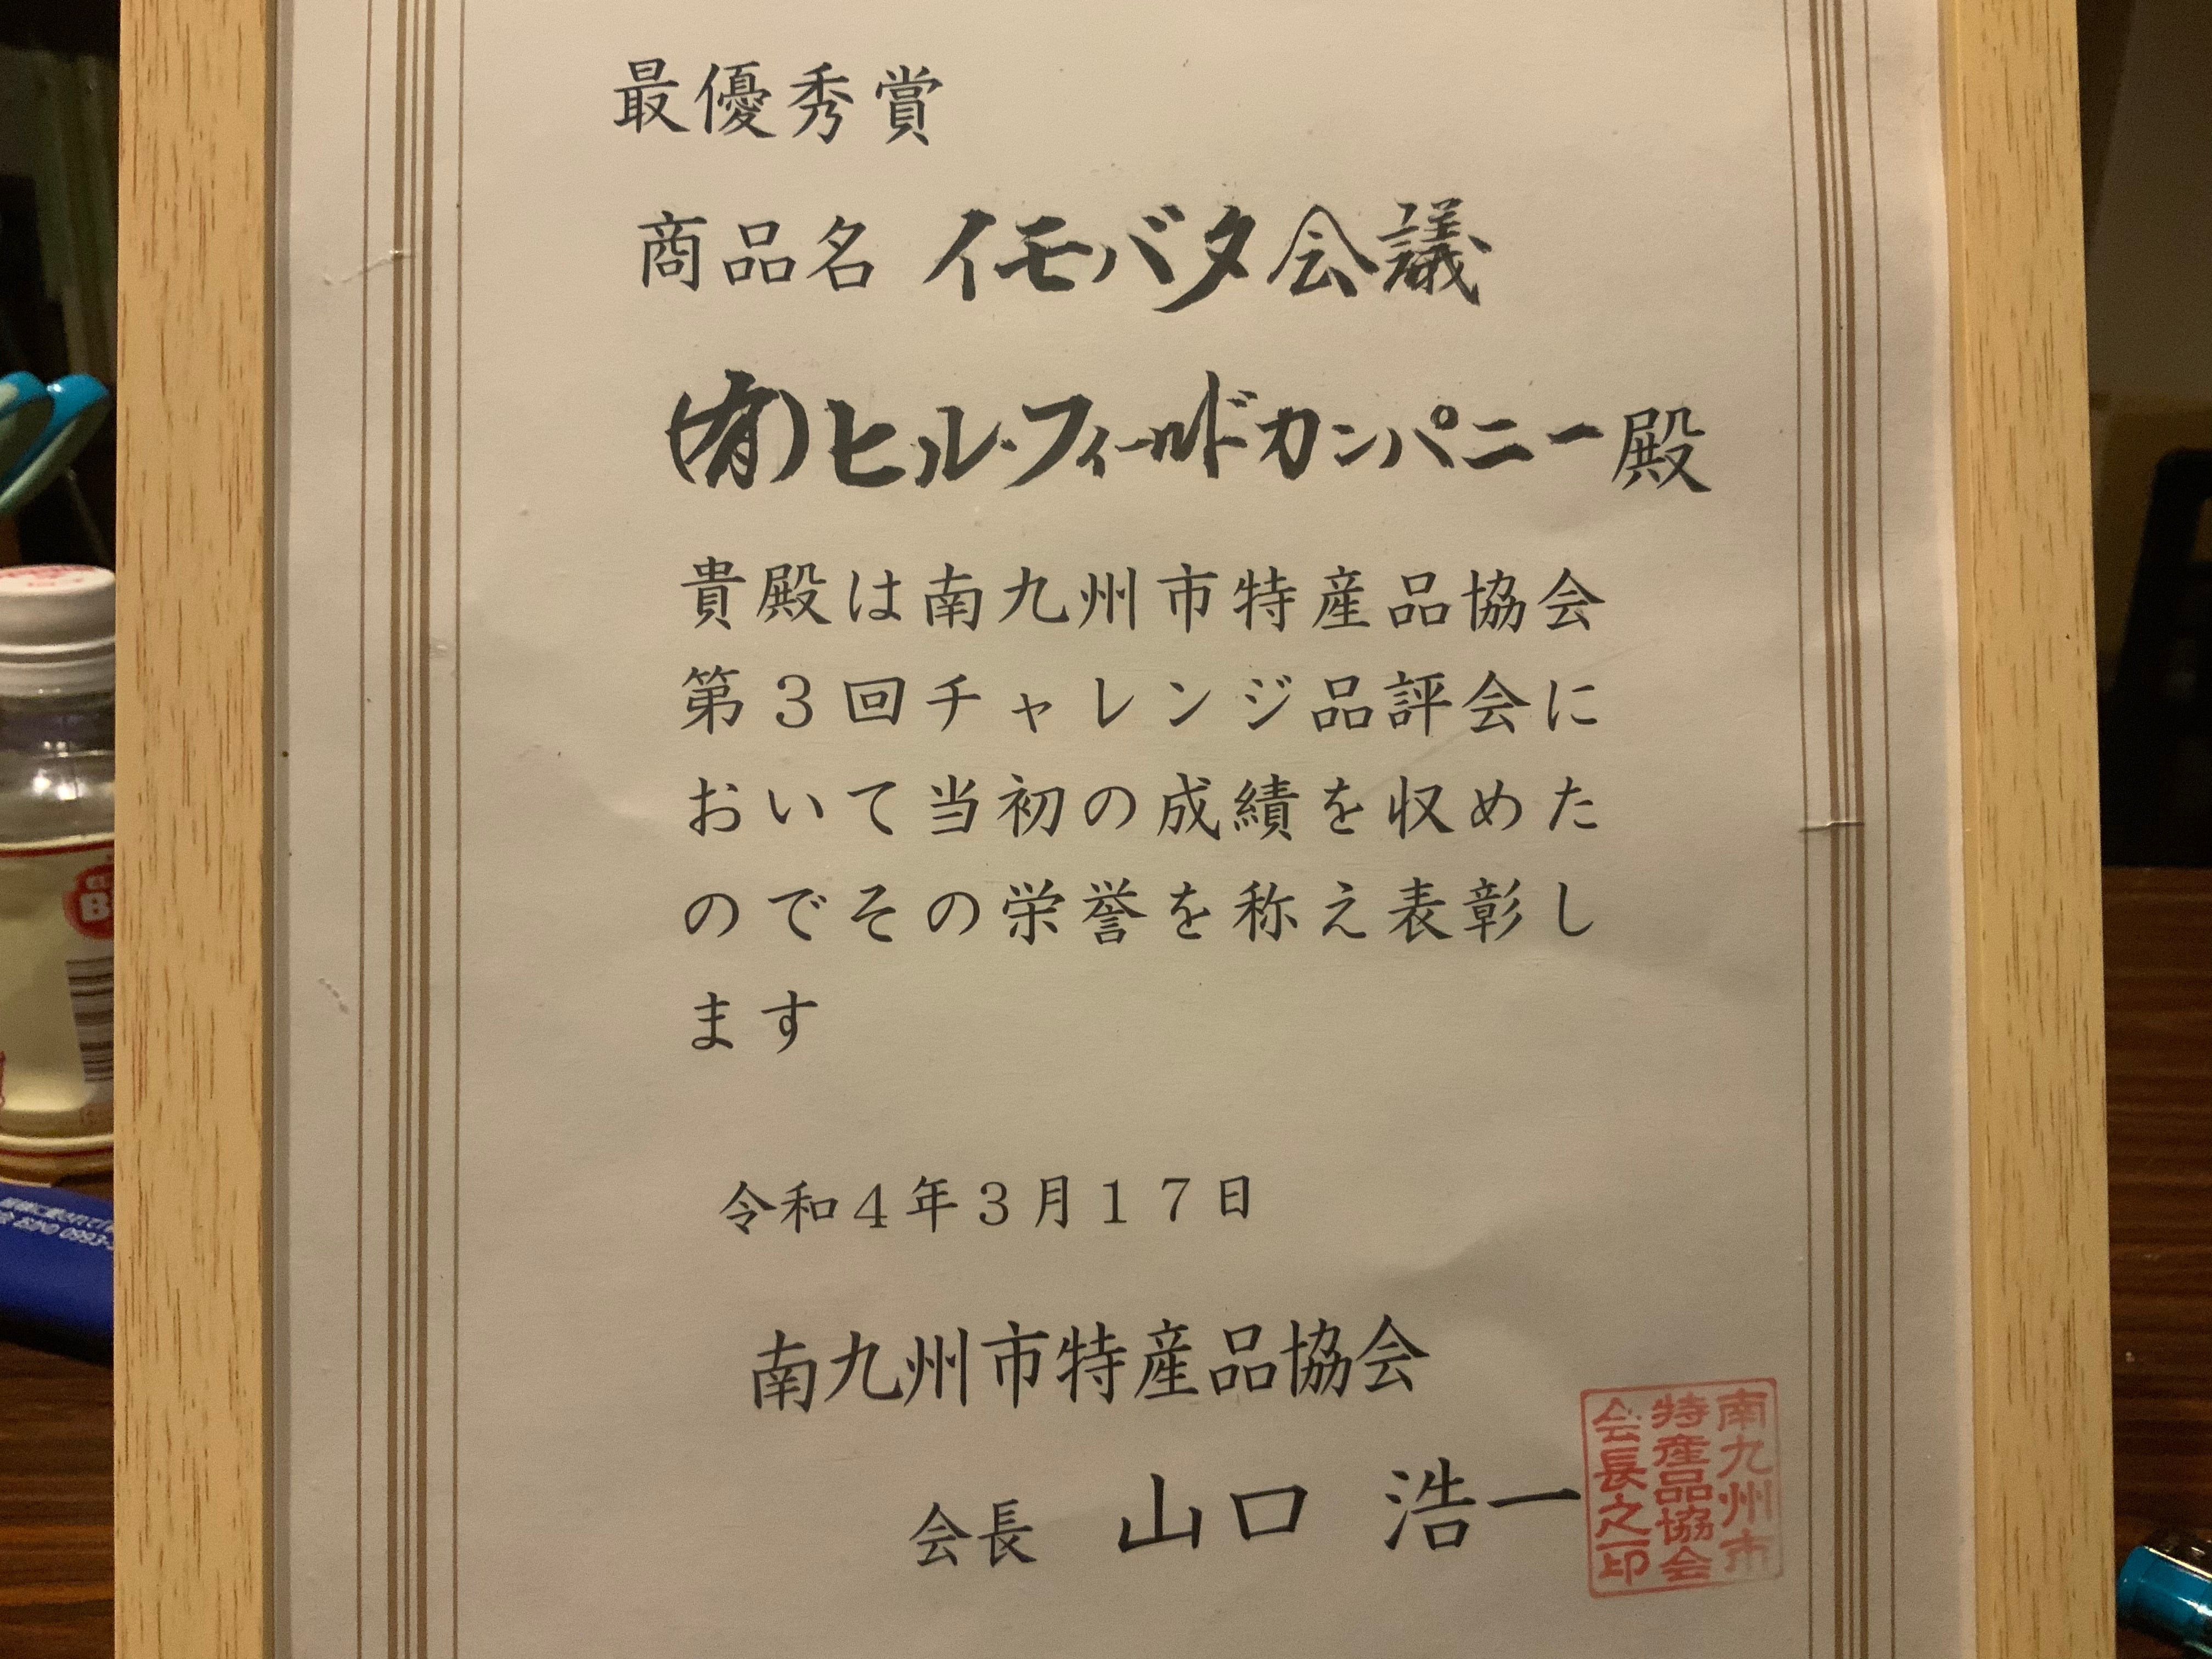 最優秀賞
商品名 イモバタ会議
(有)ヒル・フィールドカンパニー殿
貴殿は南九州市特産品協会
第３回チャレンジ品評会に
おいて当初の成績を収めた
のでその栄誉を称え表彰し
ます
令和４年３月１７日
南九州市特産品協会
会長 山口 浩一
南九州市
特産品協会
会長之印
B
0993-